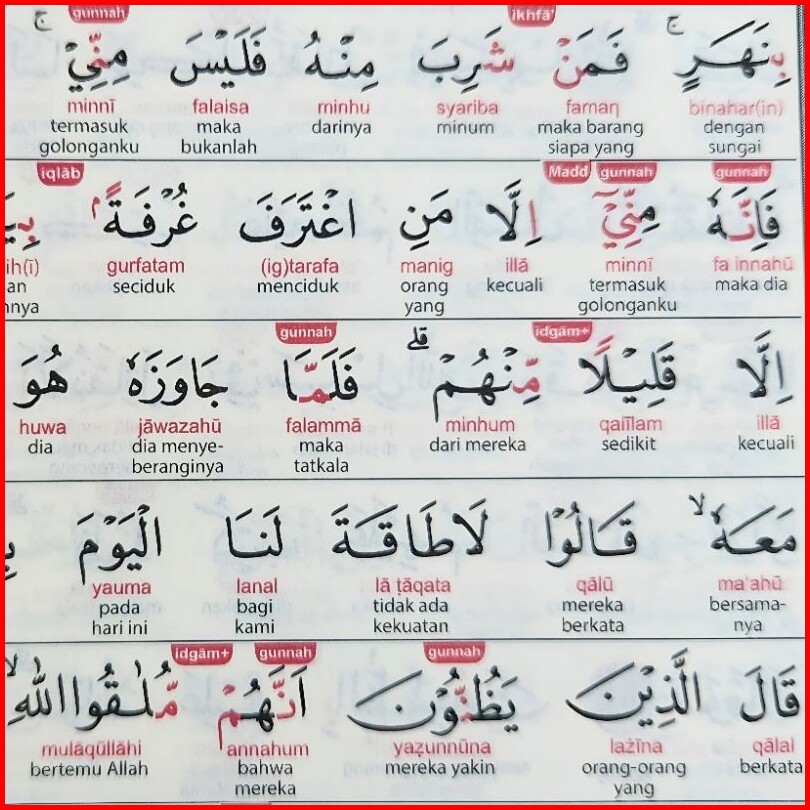 ikhfā' gunnah
بِنَهَرٍۚ فَمَنْ شَرِبَ مِنْهُ فَلَيْسَ مِنِّيْۚ
binahar(in) faman syariba minhu falaisa minnī
dengan maka barang minum darinya maka termasuk
sungai siapa yang bukanlah golonganku
gunnah gunnah Madd iqlāb
فَاِنَّهٗ مِنِّيْٓ اِلَّا مَنِ اغْتَرَفَ غُرْفَةً ۢ
fa innahū minnī illā manig (ig)tarafa gurfatam
maka dia termasuk kecuali orang menciduk seciduk
golonganku yang
idgām+ gunnah
اِلَّا قَلِيْلًا مِّنْهُمْ ۗ فَلَمَّا جَاوَزَهٗ هُوَ
illā qalīlam minhum falammā jāwazahū huwa
kecuali sedikit dari mereka maka dia menye- dia
tatkala beranginya
مَعَهٗۙ قَالُوْا لَا طَاقَةَ لَنَا الْيَوْمَ
ma'ahū qālū lā ṭāqata lanal yauma
bersama- mereka tidak ada bagi pada
nya berkata kekuatan kami hari ini
gunnah gunnah idgām+
قَالَ الَّذِيْنَ يَظُنُّوْنَ اَنَّهُمْ مُّلٰقُوا اللّٰهِۙ
qālal lażīna yaẓunnūna annahum mulāqūllāhi
berkata orang-orang mereka yakin bahwa bertemu Allah
yang mereka